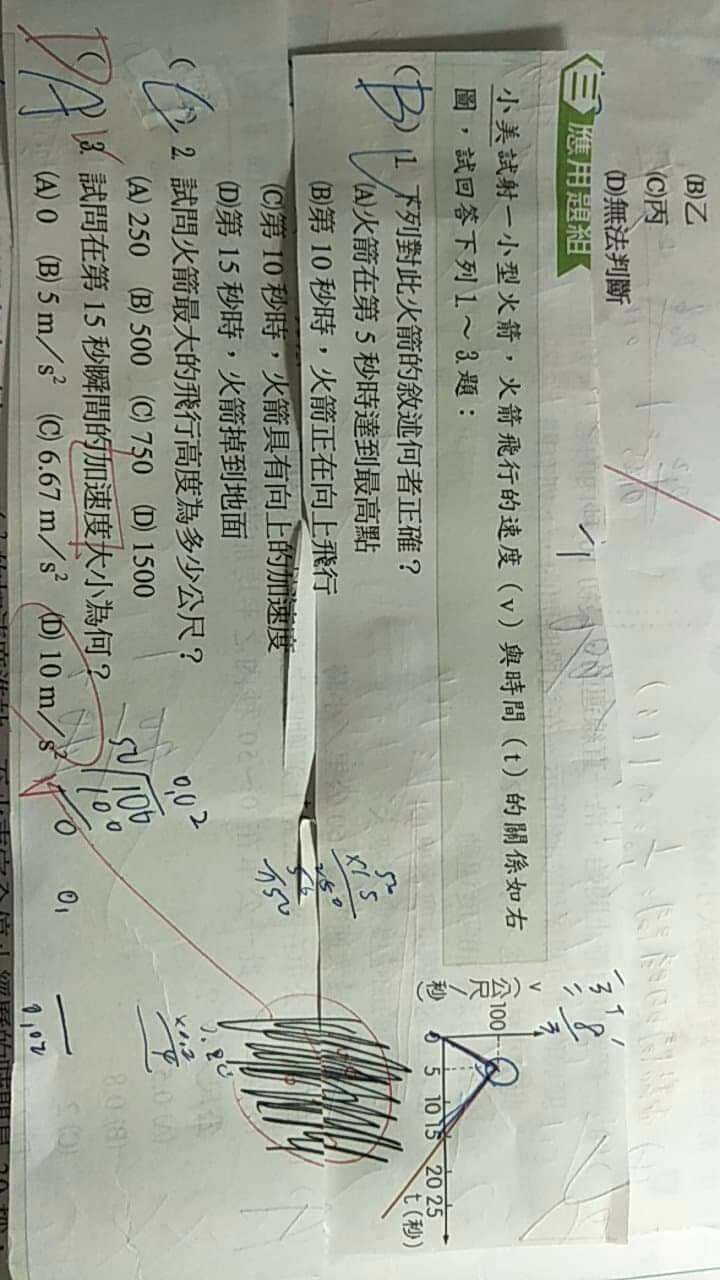 (B)乙
(C)丙
(D)無法判斷
三 應用題組
小美試射一小型火箭，火箭飛行的速度(v)與時間(t)的關係如右
圖，試回答下列1.～3.題：
v
(公尺/秒)
100
0 5 10 15 20 25
t(秒)
(B) 1. 下列對此火箭的敘述何者正確？
(A)火箭在第 5 秒時達到最高點
(B)第 10 秒時，火箭正在向上飛行
(C)第 10 秒時，火箭具有向上的加速度
(D)第 15 秒時，火箭掉到地面
(C) 2. 試問火箭最大的飛行高度為多少公尺？
(A) 250 (B) 500 (C) 750 (D) 1500
(A) 3. 試問在第 15 秒瞬間的加速度大小為何？
D
(A) 0 (B) 5 m／s² (C) 6.67 m／s² (D) 10 m／s²
50
×15
250
50
750
0.02
50 100
100
0